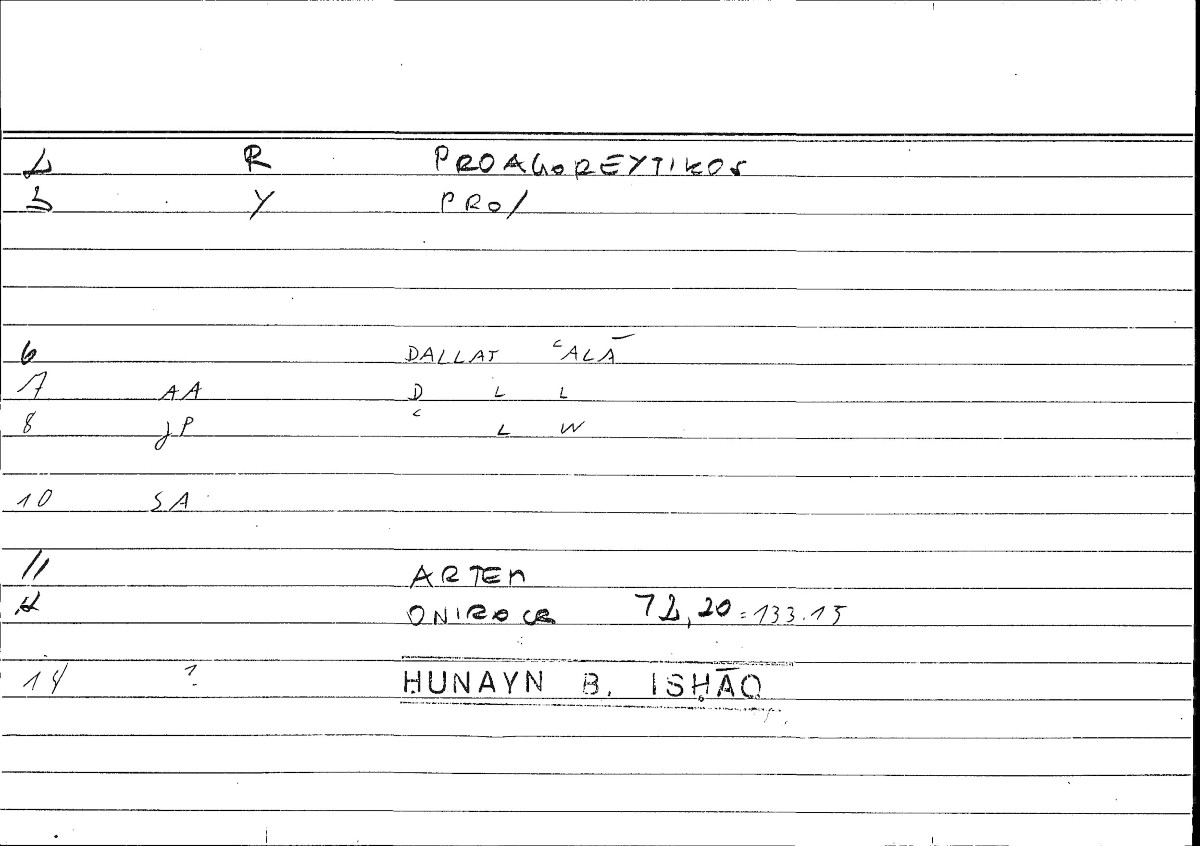 2 R PROAGOREYTIKOS
3 Y PRO/
6 DALLAT ʿALĀ
7 AA D L L
8 JP ʿ L W
10 SA
11 ARTEM
12 ONIROCR 72,20 = 133.15
14 ? ḤUNAYN B. ISḤĀQ